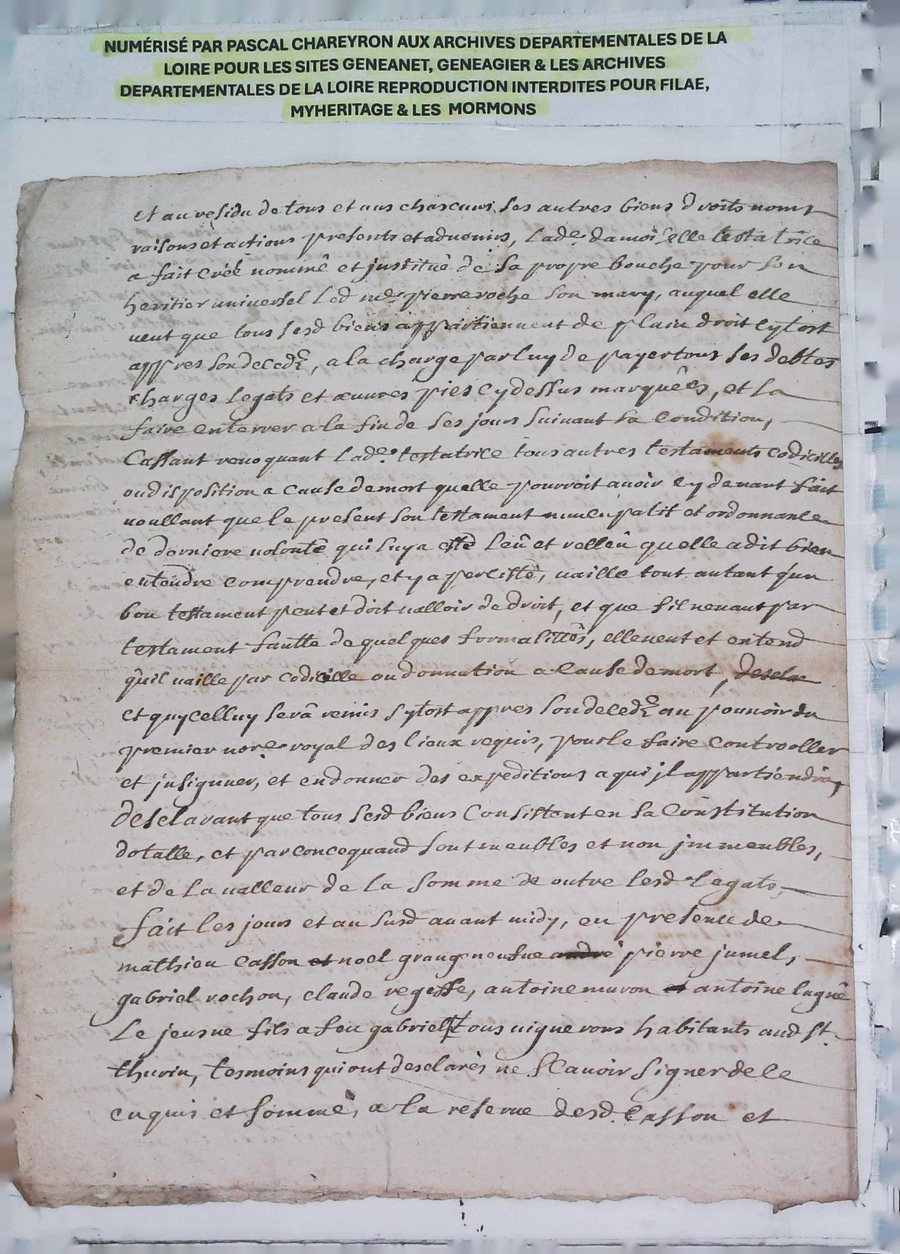 NUMÉRISÉ PAR PASCAL CHAREYRON AUX ARCHIVES DEPARTEMENTALES DE LA
LOIRE POUR LES SITES GENEANET, GENEAGIER & LES ARCHIVES
DEPARTEMENTALES DE LA LOIRE REPRODUCTION INTERDITES POUR FILAE,
MYHERITAGE & LES MORMONS
et au residu de tous et aus chascuns ses autres biens droits noms
raisons et actions presents et advenirs, lade damoiselle testatrice
a fait créé nommé et justitué de sa propre bouche pour son
heritier universel led me pierre roche son mary, auquel elle
veut que tous sesd biens appartiennent de plain droit sytost
appres son deced, a la charge par luy de payer tous ses debtes
charges legats et œuvres pies cy dessus marquées, et la
faire enterrer a la fin de ses jours suivant sa condition,
Cassant revoquant lade testatrice tous autres testaments codicilles
ou disposition a cause de mort quelle pourroit avoir cy devant fait
voullant que le present son testament nuncupatif et ordonnance
de derniere volonté qui luy a esté leü et relleü quelle a dit bien
entendre comprendre, et y a percisté, vaille tout autant qun
bon testament peut et doit valloir de droit, et que sil ne vaut par
testament fautte de quelques formalittés, elle veut et entend
quil vaille par codicille ou donnation a cause de mort,
et quycelluy sera remis sytost appres son deced au pouvoir du
premier nore royal des lieux requis, pour le faire controoller
et jnsignuer, et en donner des expeditions a qui jl appartiendra,
desclarant que tous sesd biens Consistent en sa Constitution
dotalle, et par concequand sont meubles et non jmmeubles,
et de la valleur de la somme de outre lesd legats,
fait les jours et an susd avant midy, en presence de
mathieu Casson et noel grangeneufve andré pierre jumel,
gabriel rochon, claude regeffe, antoine muron et antoine lugné
Le jeusne fils a feu gabriel tous vignerons habitants aud st
thurin, tesmoins qui ont desclarés ne sCavoir signer de ce
enquis et sommé, a la reserve desd Casson et